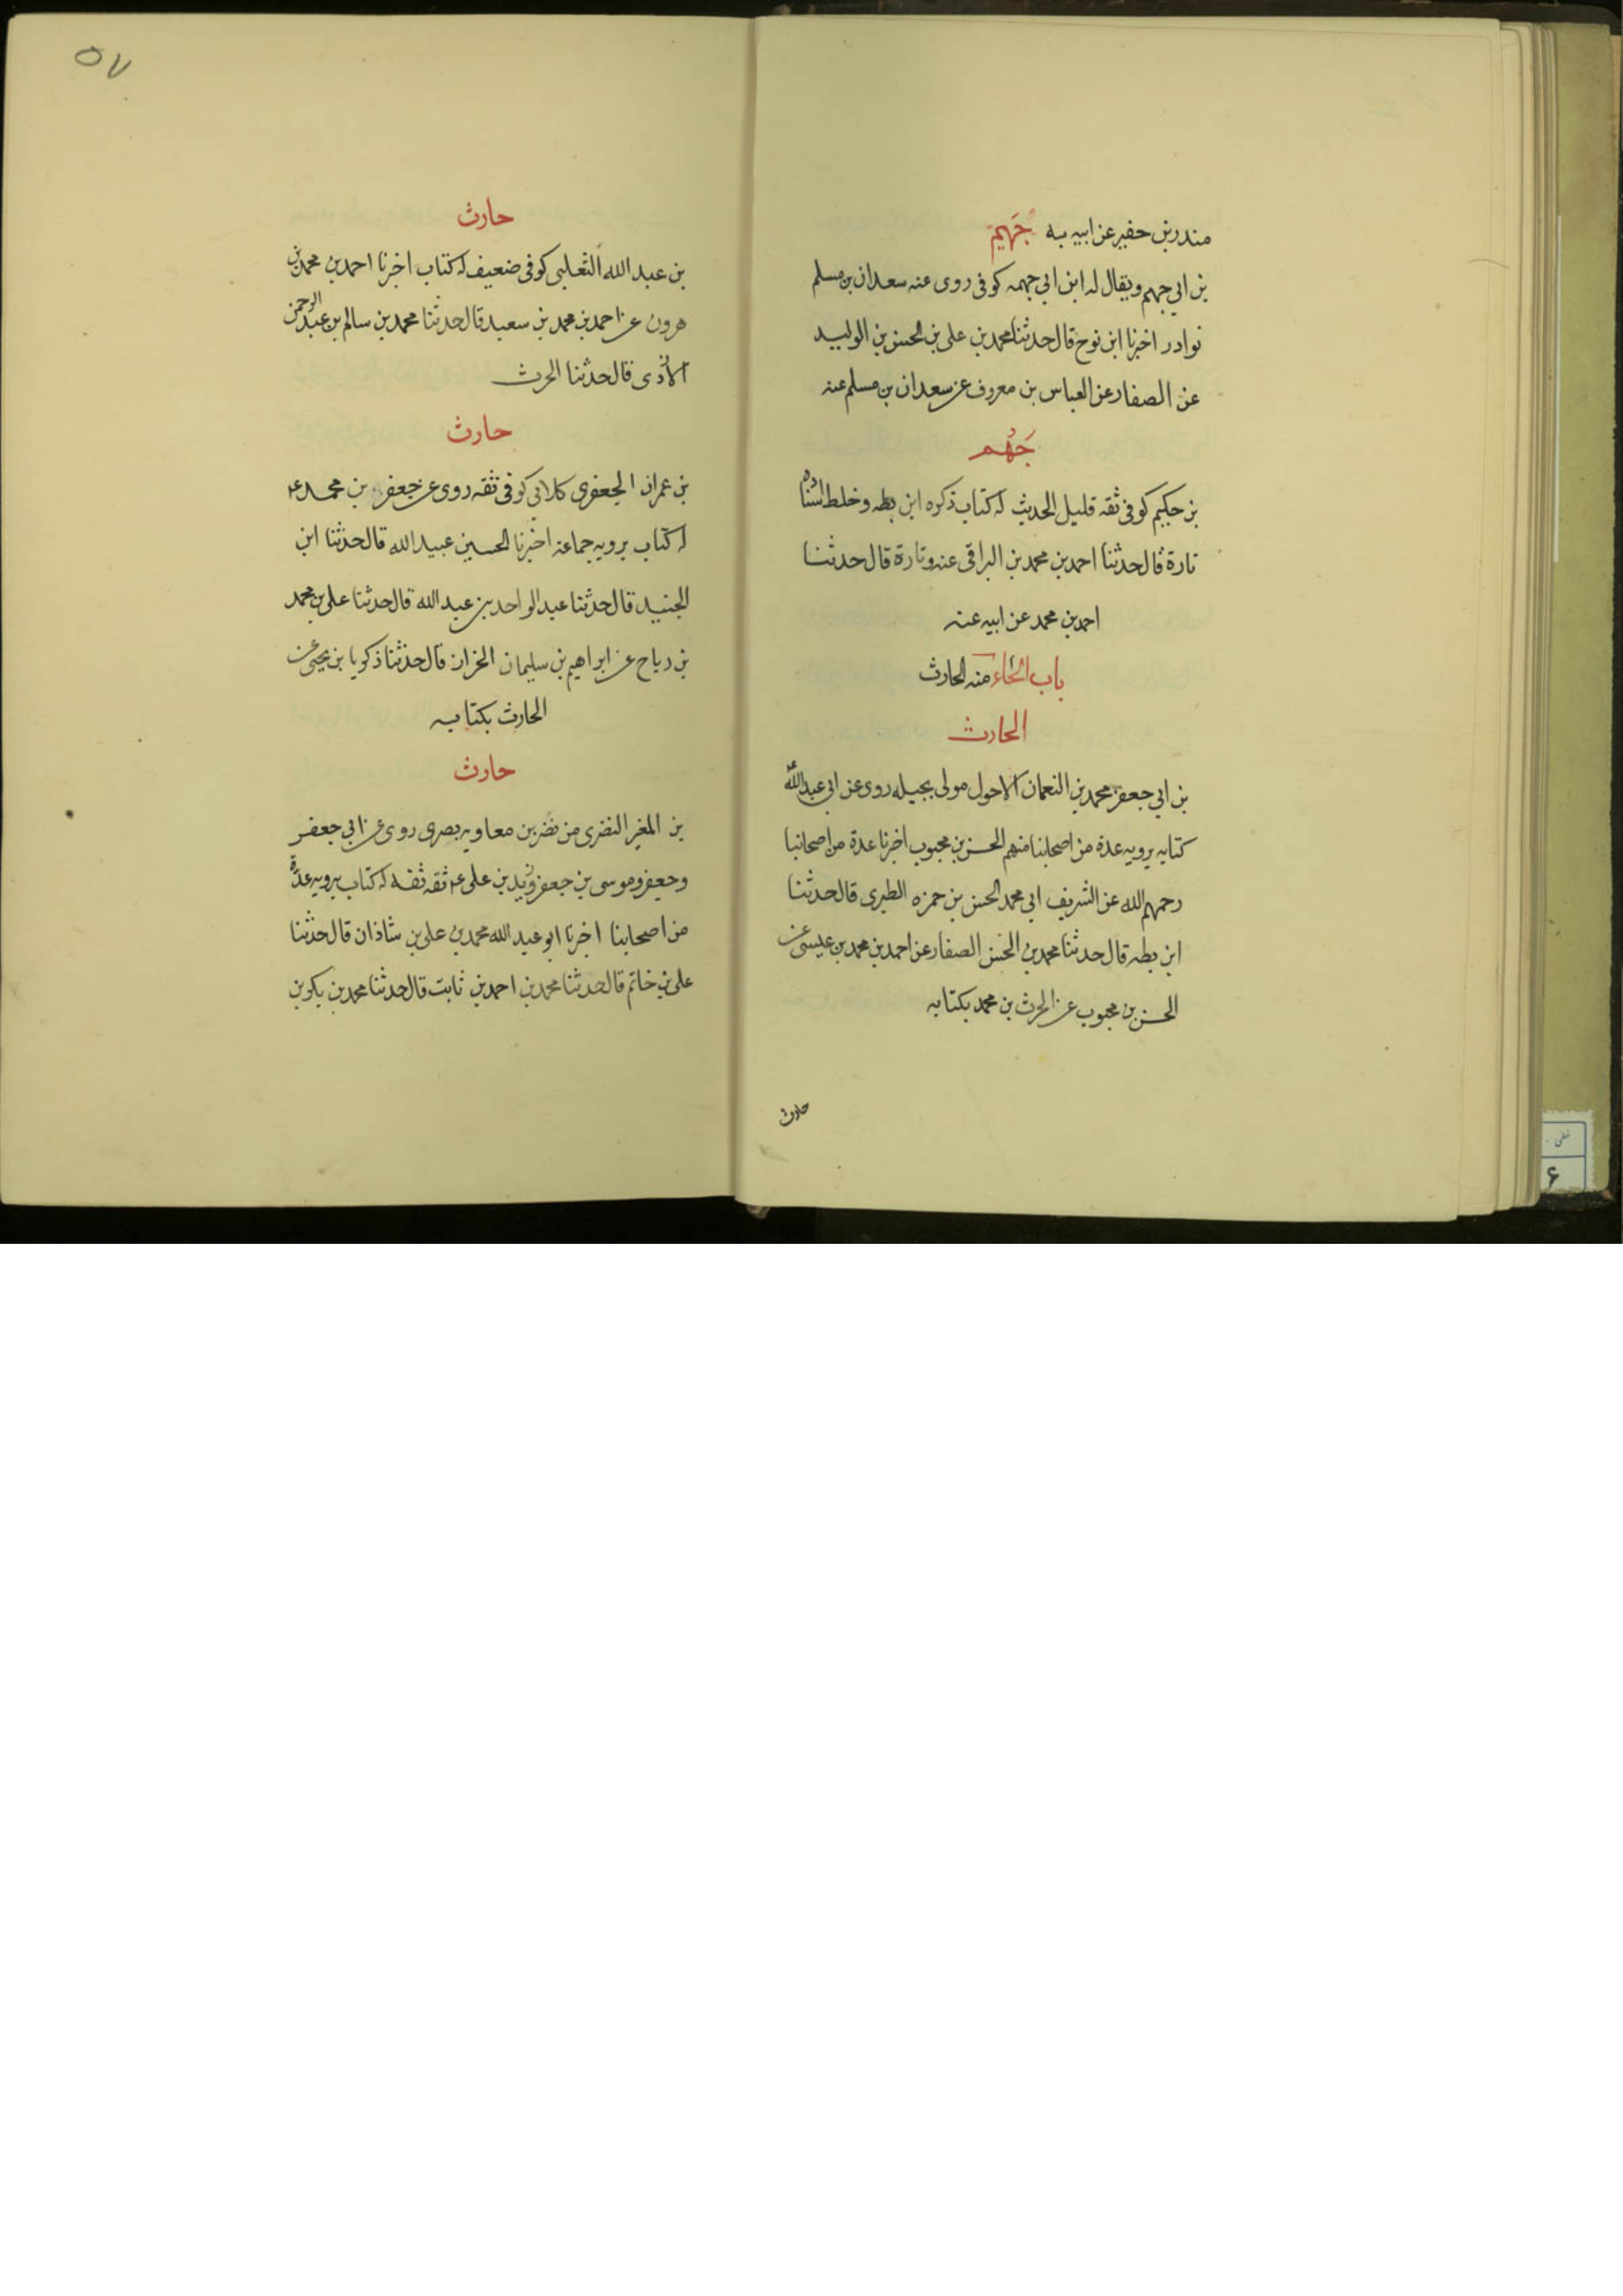 منذر بن حفير عن ابيه به جهيم
بن ابي جهم ويقال له ابن ابي جهمه كوفى روى عنه سعدان بن مسلم
نوادر اخبرنا ابن نوح قال حدثنا محمد بن على بن الحسن بن الوليد
عن الصفار عن العباس بن معروف عن سعدان بن مسلم عنه
جهم
بن حكيم كوفى ثقه قليل الحديث له كتاب ذكره ابن بطه وخلط اسناده
تارة قال حدثنا احمد بن محمد بن البراقى عنه وتارة قال حدثنا
احمد بن محمد عن ابيه عنه
باب الحاء منه الحارث
الحارث
بن ابي جعفر محمد بن النعمان الاحول مولى بجيله روى عن ابي عبد الله ع
كتابه يرويه عدة من اصحابنا منهم الحسن بن محبوب اخبرنا عدة من اصحابنا
رحمهم الله عن الشريف ابي محمد الحسن بن حمزه الطبرى قال حدثنا
ابن بطه قال حدثنا محمد بن الحسن الصفار عن احمد بن محمد بن عيسى عن
الحسن بن محبوب عن الحرث بن محمد بكتابه
حارث
٥٧
حارث
بن عبد الله الثعلبى كوفى ضعيف له كتاب اخبرنا احمد بن محمد بن
هرون عن احمد بن محمد بن سعيد قال حدثنا محمد بن سالم بن عبد الرحمن
الازدى قال حدثنا الحرث
حارث
بن عمران الجعفرى كلابى كوفى ثقه روى عن جعفر بن محمد ع
له كتاب يرويه جماعة اخبرنا الحسين عبيد الله قال حدثنا ابن
الجنيد قال حدثنا عبد الواحد بن عبد الله قال حدثنا على بن محمد
بن رباح عن ابراهيم بن سليمان الخزاز قال حدثنا زكريا بن يحيى عن
الحارث بكتابه
حارث
بن المغير النضرى من نضر بن معاويه بصرى روى عن ابي جعفر
وجعفر وموسى بن جعفر وزيد بن على ع ثقه ثقه له كتاب يرويه عدة
من اصحابنا اخبرنا ابو عبد الله محمد بن على بن شاذان قال حدثنا
على بن خاتم قال حدثنا محمد بن احمد بن ثابت قال حدثنا محمد بن بكر بن